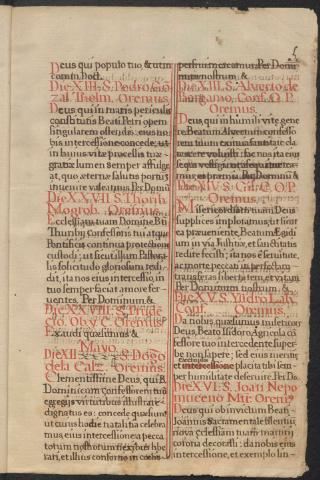 5
Deus qui populo tuo, & ut in
com. in Doct.
Die XIII. S. Pedro
Oremus.
Deus qui in maris periculis
constitutis Beati Petri opem
singularem ostendis: eius no-
bis intercessione concede, ut
in huius vite procellis tuæ
gratiæ lumen semper affulge
at, quo æternæ salutis portũ
invenire valeamus. Per Dominũ
Die XXVII. S. Thorib.
Mogrob. Oremus.
Ecclesiam tuam Domine Bti
Thuribij Confessoris tui atque
Pontificis continua protectione
custodi: ut sicut illum Pastora-
lis solicitudo gloriosum reddi-
dit, ita nos eius intercessio, in
tuo semper faciat amore fer-
ventes. Per Dominum &
Die XXVIII. S. Prude
cio. Ob. y C. Oremus
Exaudi quæsumus &
Mayo.
Die XII S. Domgo
dela Calz. Oremus.
Clementissime Deus, qui B.
Dominicum Confessorem tuũ
egregijs virtutibus illustrare
dignatus es: concede quæsumus
ut cuius hodie natalitia celebra
mus, eius intercessione a pecca
torum nostrorum nexibus libe
rari, et illius consortio in cœlis
perfrui mereamur. Per Domi
num nostrum, &
Die XIII. S. Alverto de
Bergamo, Conf. O. P.
Oremus.
Deus qui in humili vite gene
re Beatum Alvertum Confesso
rem tuum eximia sanctitate cla
rescere voluisti: fac nos ita eius
Per Dominũ &
Die XIV. S. Gil. C. O. P.
Oremus.
Misericordiam tuam Deus
supplices imploramus, ut sicut
tu præveniente, Beatum Ægidi
um in via Iustitiæ, et sanctitatis
redire fecisti; ita nos
de morte peccati in perfectam
transferas libertatem, et vitam.
Per Dominum nostrum, &
Die XV. S. Ysidro Lab.
Conf. Oremus.
Da nobis, quæsumus misericors
Deus, Beato Isidoro Agricola Cõ
fessore tuo intercedente super-
be non sapere; sed eius meritis
et intercessione placita tibi sem
per humilitate deservire. Per Do.
Die XVI. S. Ioan Nepo
muceno Mtr. Oremꝰ
Deus qui ob invictum Beati
Ioannis Sacramentale silentiũ
nova Ecclesiam tuam martirij
corona decorasti: da nobis eius
intercessione, et exemplo lin-